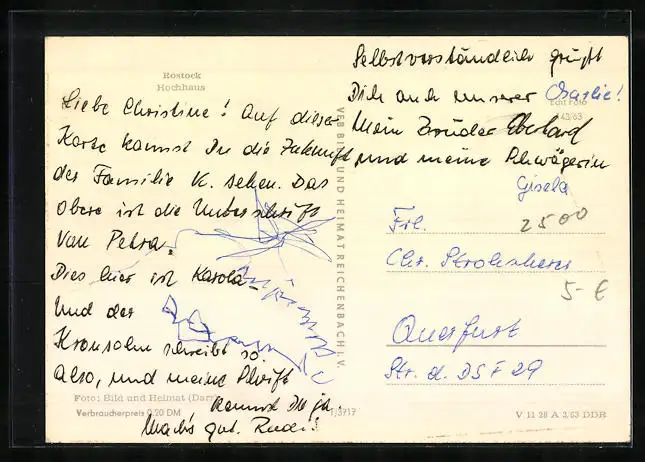 Rostock
Hochhaus
Liebe Christine! Auf dieser
Karte kannst Du die Zukunft
der Familie K. sehen. Das
obere ist die Unterschrift
von Petra.
Dies hier ist Karola
Und der
Kronsohn schreibt so.
Also, und meine Schrift
kennst Du ja.
Mach's gut. Rudi
Foto: Bild und Heimat
Verbraucherpreis 0,20 DM
1/3717
VEB BILD UND HEIMAT REICHENBACH I. V.
Selbstverständlich grüßt
Dich auch unserer Charlie!
Echt Foto
Mein Bruder Eberhard
und meine Schwägerin
Gisela
Frl. 2500
Chr.
5- €
Querfurt
Str. d. DSF 29
V 11 28 A 3/63 DDR